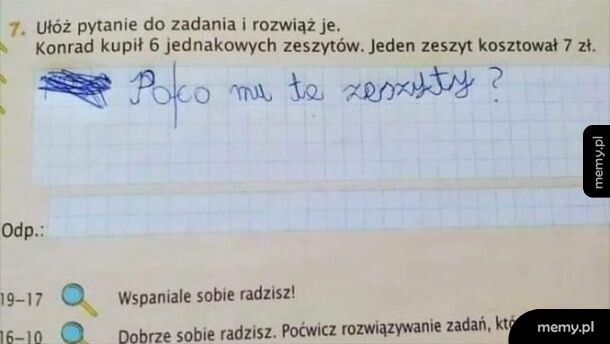 7. Ułóż pytanie do zadania i rozwiąż je.
Konrad kupił 6 jednakowych zeszytów. Jeden zeszyt kosztował 7 zł.
Po co mu te zeszyty?
memy.pl
Odp.:
19–17 Wspaniale sobie radzisz!
16–10 Dobrze sobie radzisz. Poćwicz rozwiązywanie zadań,
memy.pl